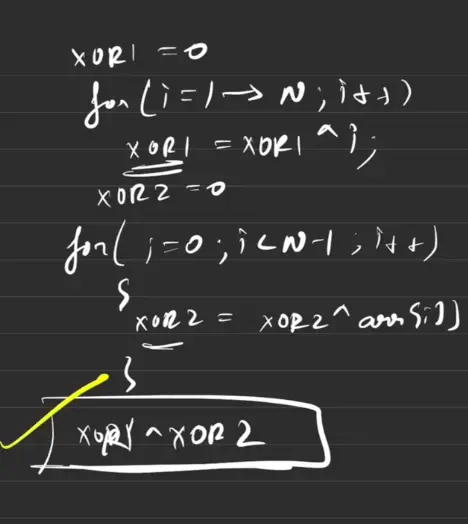 XOR1 = 0
for(i=1→N; i++)
XOR1 = XOR1 ^ i;
XOR2 = 0
for(i=0; i<N-1; i++)
{
XOR2 = XOR2 ^ arr[i]
}
XOR1 ^ XOR2